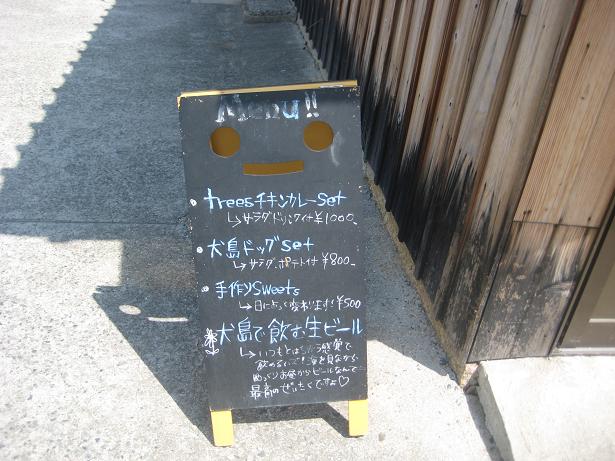 Menu!!
treesチキンカレーset
↳サラダ.ドリンク付¥1000_
犬島ドッグset
↳サラダ.ポテト付¥800_
手作りSweets
↳日によって変わります!¥500
犬島で飲む生ビール
↳いつもとはちがう感覚で
飲めるビール!海を見ながら、
ゆっくりお昼からビールなんて
最高のぜいたくですよ♡